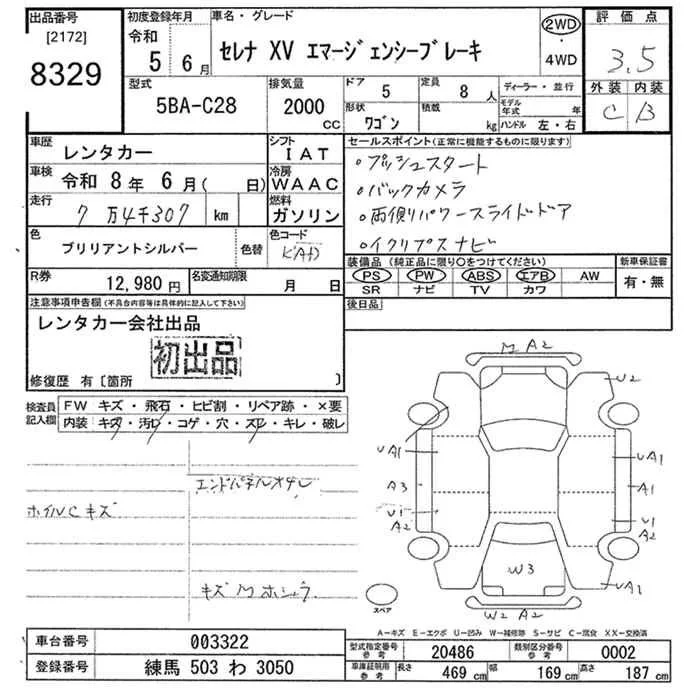 出品番号
[2172]
8329
初度登録年月
令和
5年 6月
車名・グレード
セレナ XV エマージェンシーブレーキ
2WD
・
4WD
評価点
3.5
外装 内装
C B
型式
5BA-C28
排気量
2000
CC
ドア
5
定員
8人
形状
ワゴン
積載
kg
ディーラー・並行
モデル年式 年
ハンドル 左・右
車歴
レンタカー
シフト
IAT
車検
令和 8年 6月( 日)
冷房
WAAC
走行
7万4千307 km
燃料
ガソリン
色
ブリリアントシルバー
色替
色コード
R券
12,980円
名変通知期限
月 日
セールスポイント(正常に機能するものに限ります)
・プッシュスタート
・バックカメラ
・両側パワースライドドア
・イクリプスナビ
装備品(純正品に限り○をつけてください)
PS PW ABS エアB AW
SR ナビ TV カワ
新車保証書
有・無
後日品
注意事項申告欄(不具合内容等は具体的に記入して下さい)
レンタカー会社出品
初出品
修復歴 有〔箇所 〕
検査員
記入欄
FW キズ・飛石・ヒビ割・リペア跡・×要
内装 キズ・汚レ・コゲ・穴・スレ・キレ・破レ
エンドパネルオサレ
ホイルCキズ
M A2
U2
UA1
UA1
A3
A1
U1
A2
U1
A2
W3
UA1
W2 A2
スペア
A-キズ E-エクボ U-凹み W-補修跡 S-サビ C-腐食 XX-交換済
車台番号
003322
登録番号
練馬 503 わ 3050
型式指定番号
参考
20486
類別区分番号
参考
0002
車庫証明用
参考
長さ
469 cm
幅
169 cm
高さ
187 cm